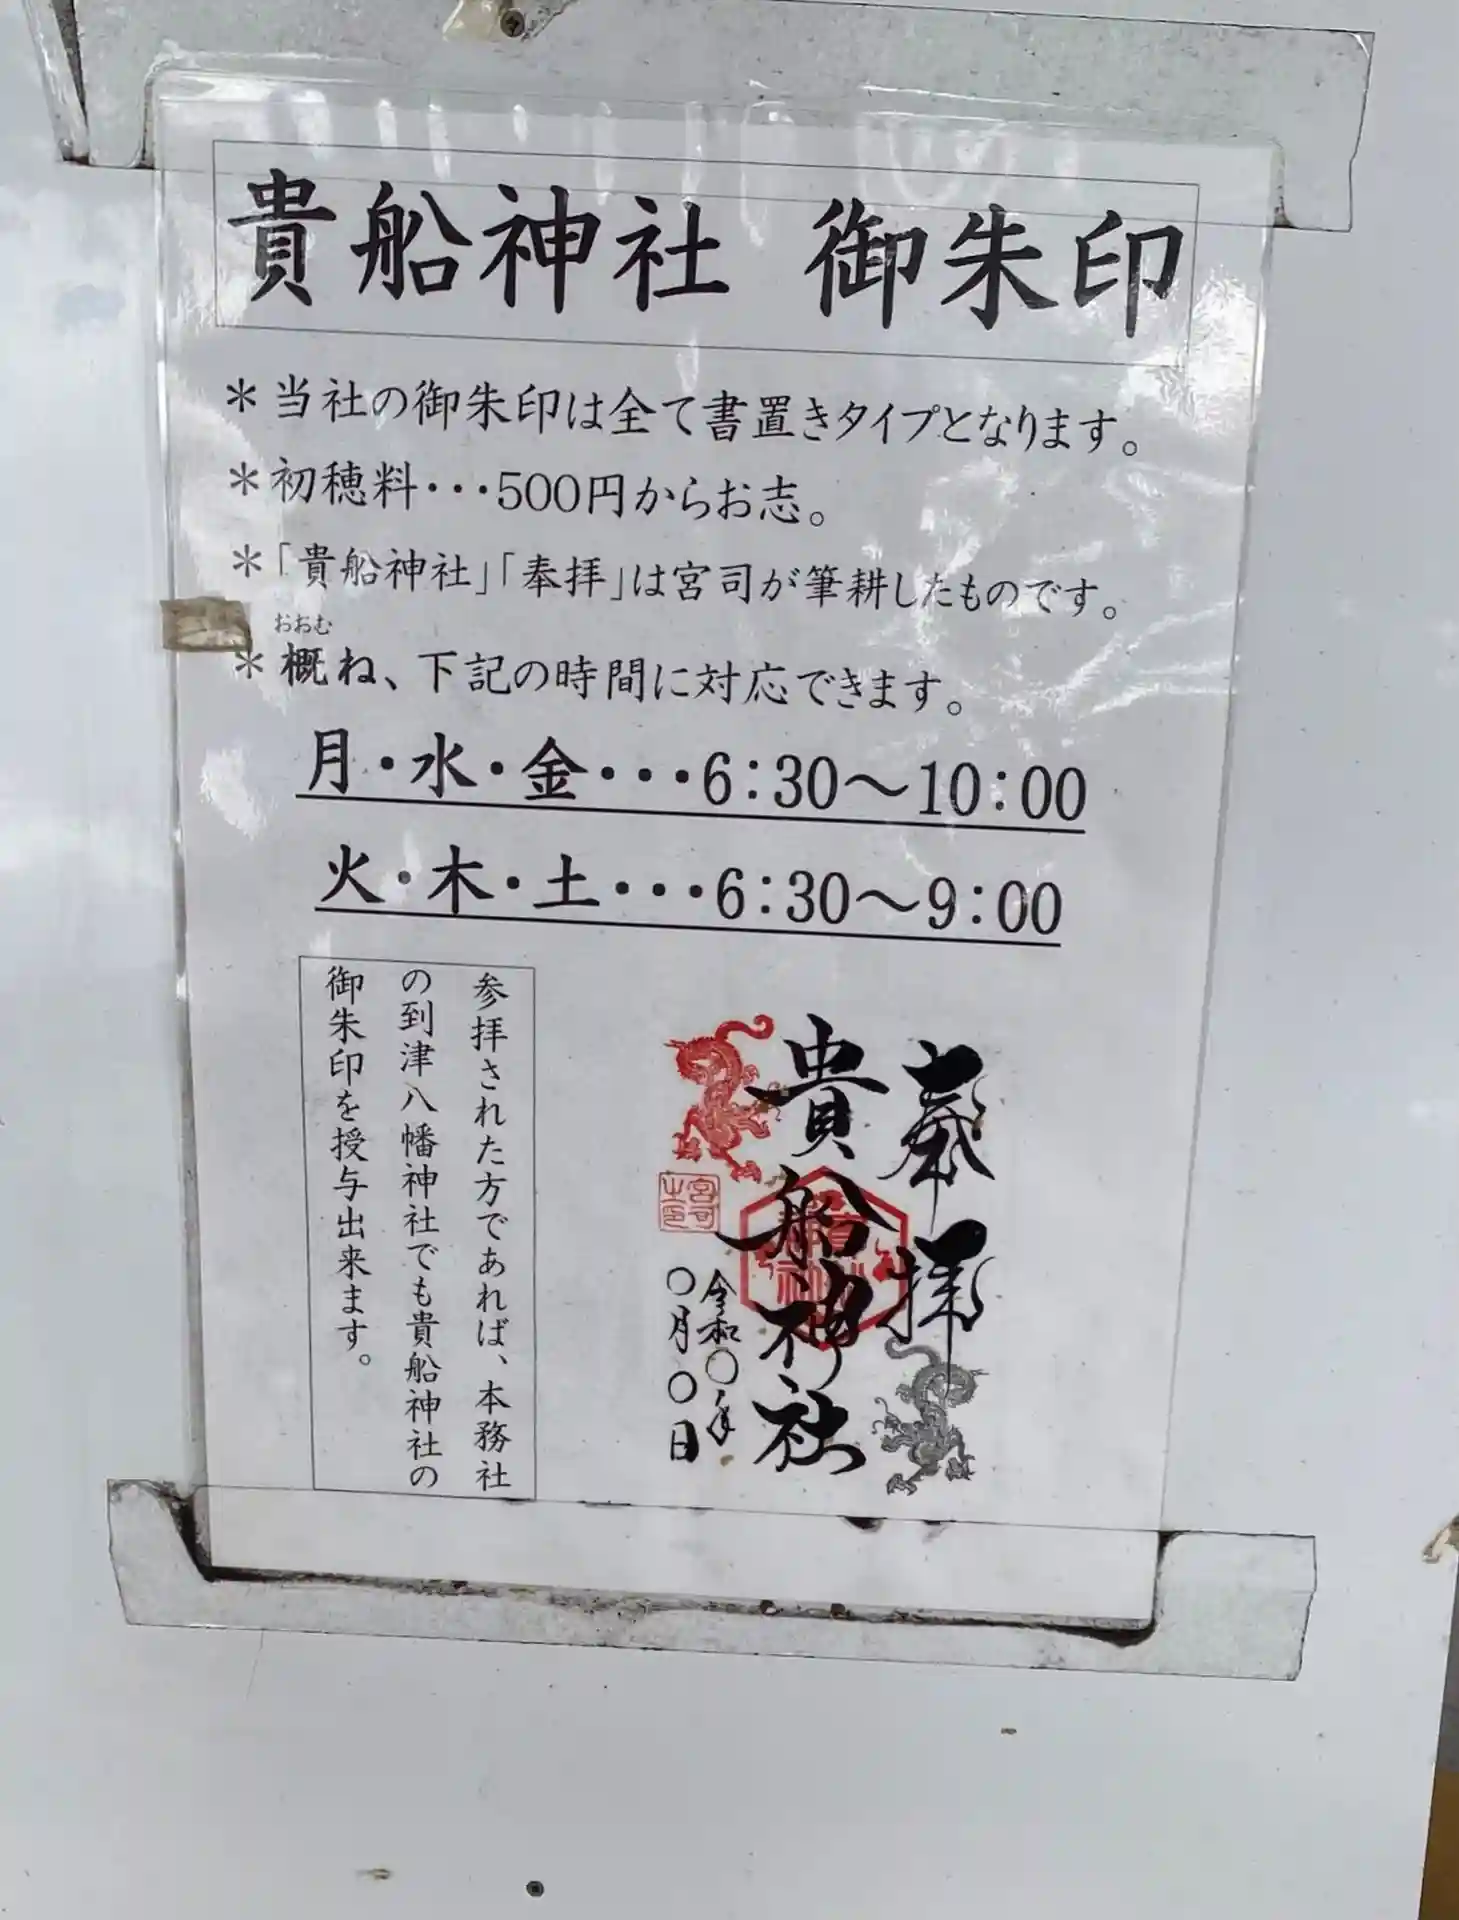 貴船神社 御朱印
＊当社の御朱印は全て書置きタイプとなります。
＊初穂料・・・500円からお志。
＊「貴船神社」「奉拝」は宮司が筆耕したものです。
おおむ
＊概ね、下記の時間に対応できます。
月・水・金・・・6：30～10：00
火・木・土・・・6：30～9：00
参拝された方であれば、本務社
の到津八幡神社でも貴船神社の
御朱印を授与出来ます。
奉拝
貴船神社
令和〇年
〇月〇日
宮司之印